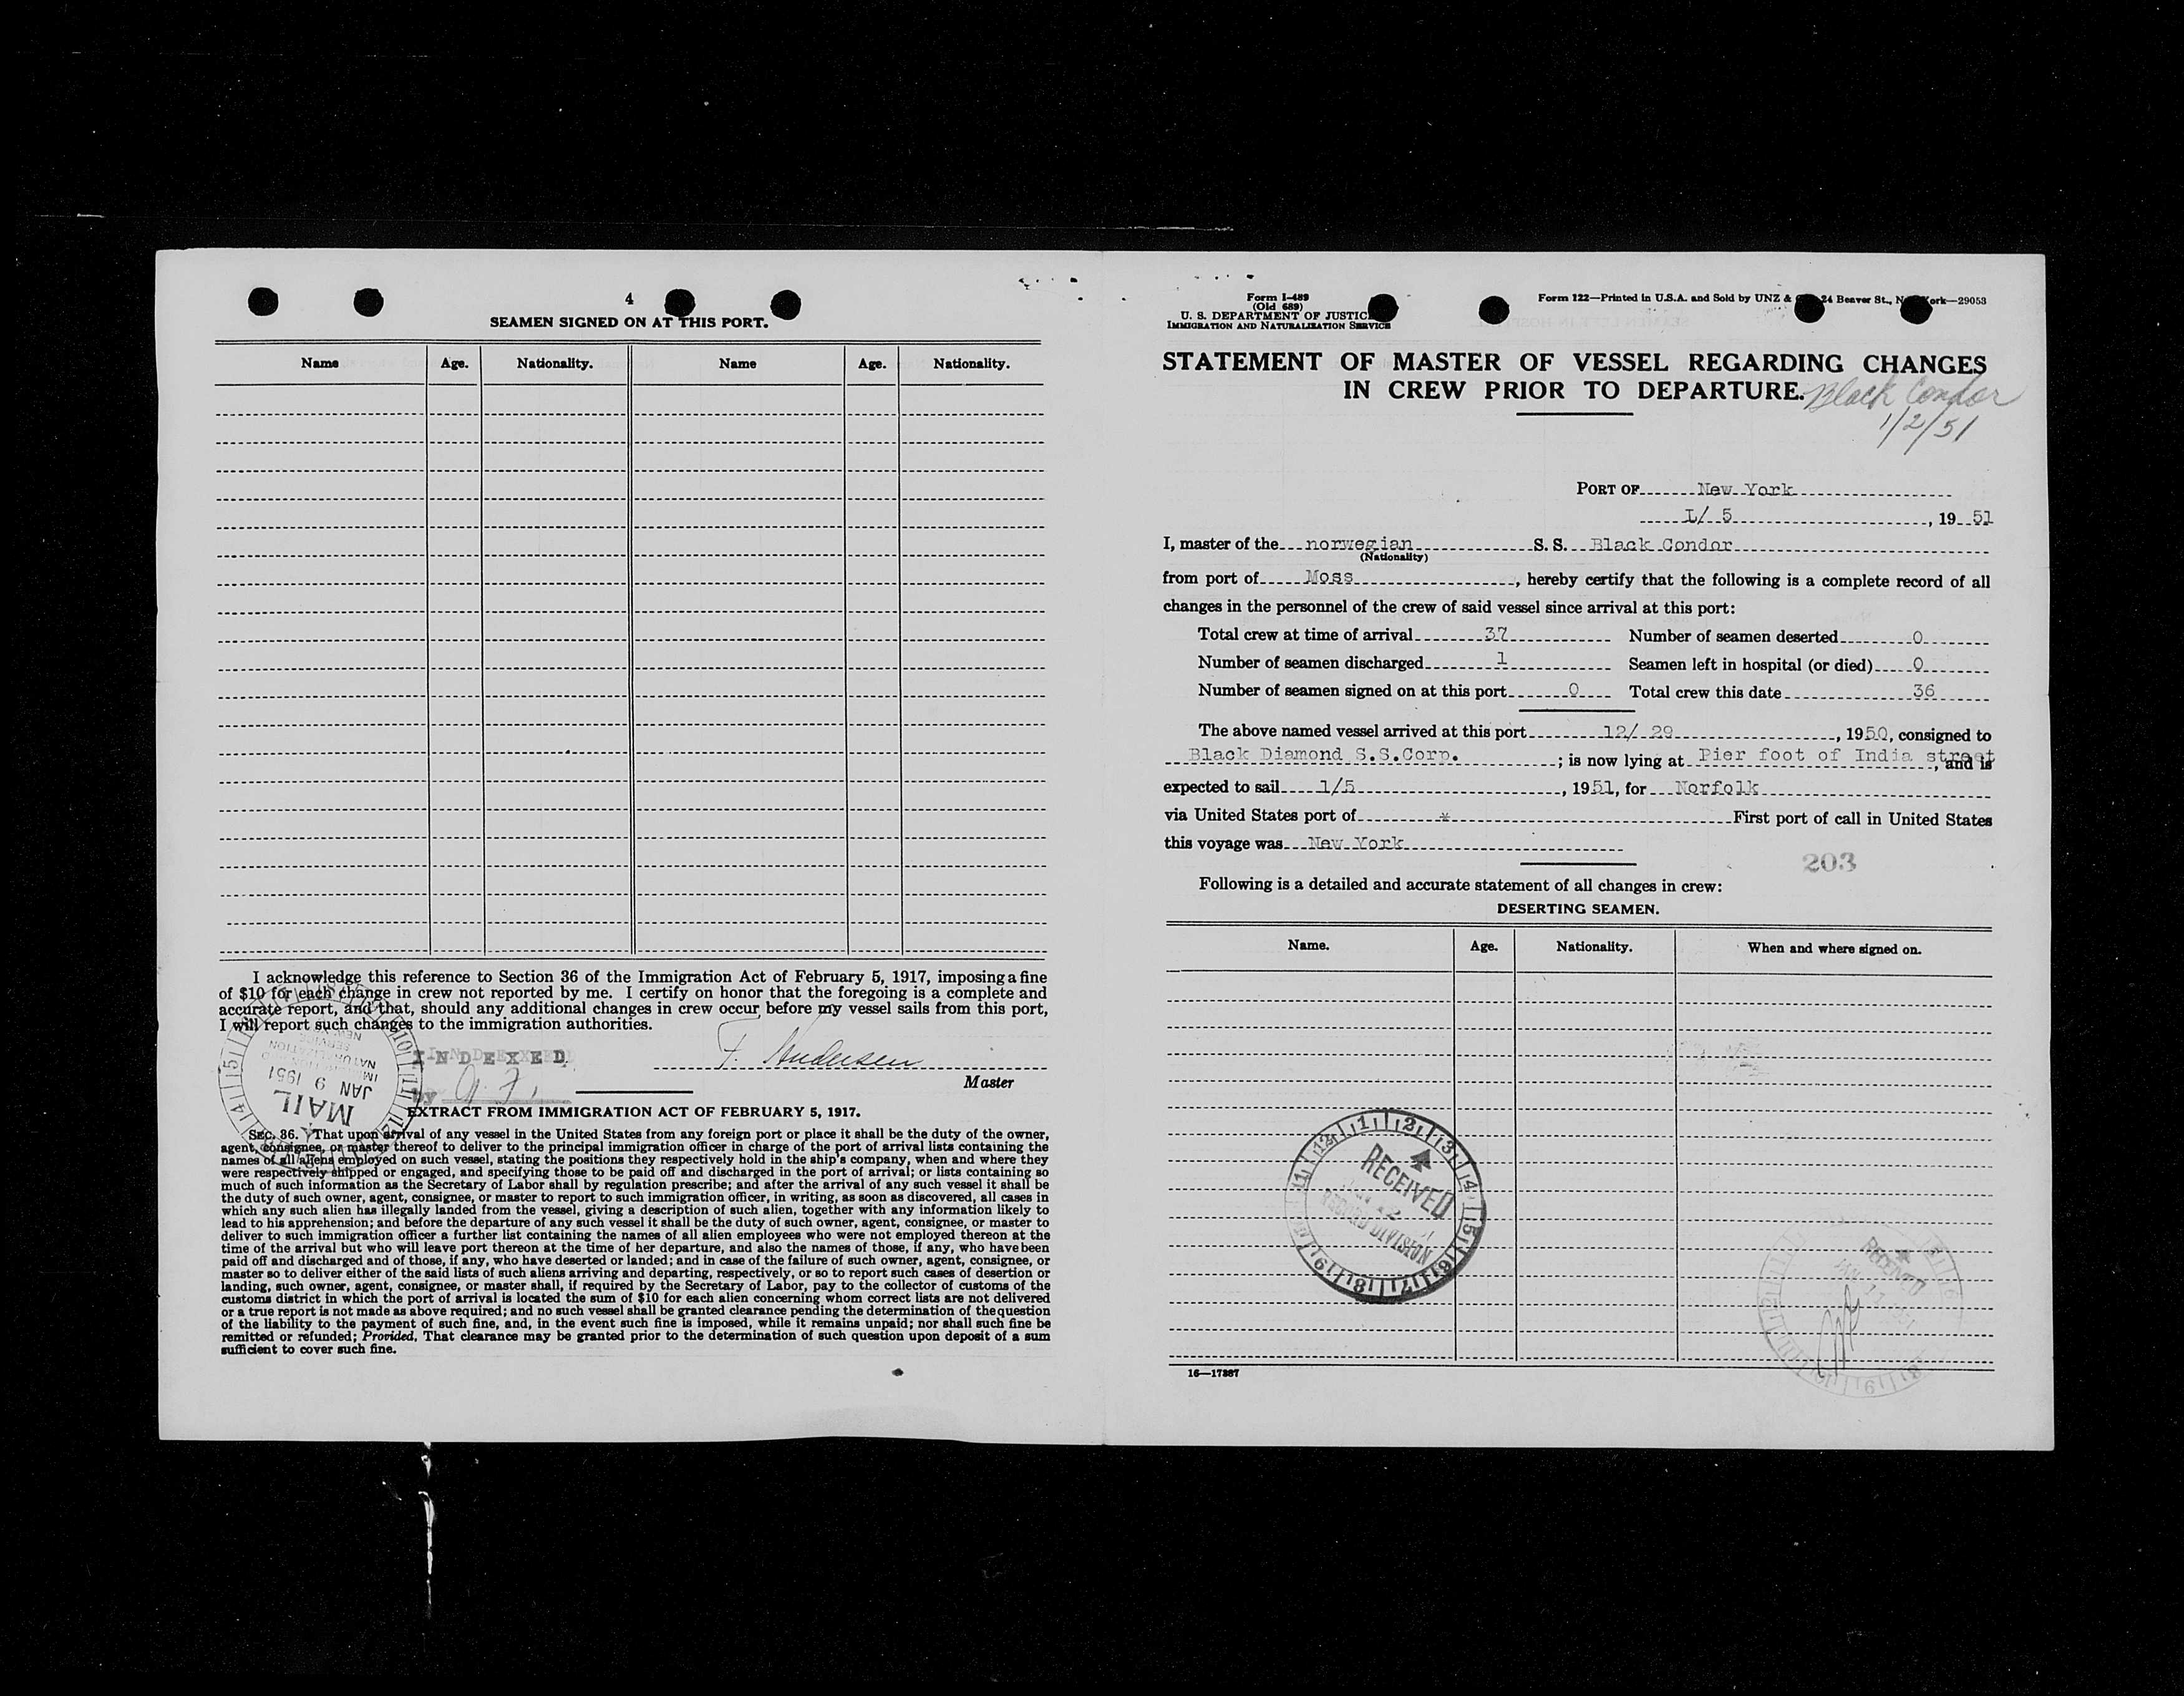 4
SEAMEN SIGNED ON AT THIS PORT.
Name Age. Nationality. Name Age. Nationality.
I acknowledge this reference to Section 36 of the Immigration Act of February 5, 1917, imposing a fine
of $10 for each change in crew not reported by me. I certify on honor that the foregoing is a complete and
accurate report, and that, should any additional changes in crew occur before my vessel sails from this port,
I will report such changes to the immigration authorities.
INDEXED
by
F. Andersen
Master
NATURALIZATION
SERVICE
JAN 9 1951
MAIL
EXTRACT FROM IMMIGRATION ACT OF FEBRUARY 5, 1917.
SEC. 36. That upon arrival of any vessel in the United States from any foreign port or place it shall be the duty of the owner,
agent, consignee, or master thereof to deliver to the principal immigration officer in charge of the port of arrival lists containing the
names of all aliens employed on such vessel, stating the positions they respectively hold in the ship's company, when and where they
were respectively shipped or engaged, and specifying those to be paid off and discharged in the port of arrival; or lists containing so
much of such information as the Secretary of Labor shall by regulation prescribe; and after the arrival of any such vessel it shall be
the duty of such owner, agent, consignee, or master to report to such immigration officer, in writing, as soon as discovered, all cases in
which any such alien has illegally landed from the vessel, giving a description of such alien, together with any information likely to
lead to his apprehension; and before the departure of any such vessel it shall be the duty of such owner, agent, consignee, or master to
deliver to such immigration officer a further list containing the names of all alien employees who were not employed thereon at the
time of the arrival but who will leave port thereon at the time of her departure, and also the names of those, if any, who have been
paid off and discharged and of those, if any, who have deserted or landed; and in case of the failure of such owner, agent, consignee, or
master so to deliver either of the said lists of such aliens arriving and departing, respectively, or so to report such cases of desertion or
landing, such owner, agent, consignee, or master shall, if required by the Secretary of Labor, pay to the collector of customs of the
customs district in which the port of arrival is located the sum of $10 for each alien concerning whom correct lists are not delivered
or a true report is not made as above required; and no such vessel shall be granted clearance pending the determination of the question
of the liability to the payment of such fine, and, in the event such fine is imposed, while it remains unpaid; nor shall such fine be
remitted or refunded; Provided, That clearance may be granted prior to the determination of such question upon deposit of a sum
sufficient to cover such fine.
Form I-489
(Old 689)
U. S. DEPARTMENT OF JUSTIC
IMMIGRATION AND NATURALIZATION SERVICE
Form 122—Printed in U.S.A. and Sold by UNZ & 24 Beaver St., N ork—29053
STATEMENT OF MASTER OF VESSEL REGARDING CHANGES
IN CREW PRIOR TO DEPARTURE.
Black Condor
1/2/51
PORT OF New York
1/ 5, 19 51
I, master of the norwegian S. S. Black Condor
(Nationality)
from port of Moss, hereby certify that the following is a complete record of all
changes in the personnel of the crew of said vessel since arrival at this port:
Total crew at time of arrival 37 Number of seamen deserted 0
Number of seamen discharged 1 Seamen left in hospital (or died) 0
Number of seamen signed on at this port 0 Total crew this date 36
The above named vessel arrived at this port 12/ 29, 1950, consigned to
Black Diamond S.S.Corp.; is now lying at Pier foot of India street, and is
expected to sail 1/5, 1951, for Norfolk
via United States port of * First port of call in United States
this voyage was New York
203
Following is a detailed and accurate statement of all changes in crew:
DESERTING SEAMEN.
Name. Age. Nationality. When and where signed on.
RECEIVED
RECORD DIVISION
RECEIVED
16—17887